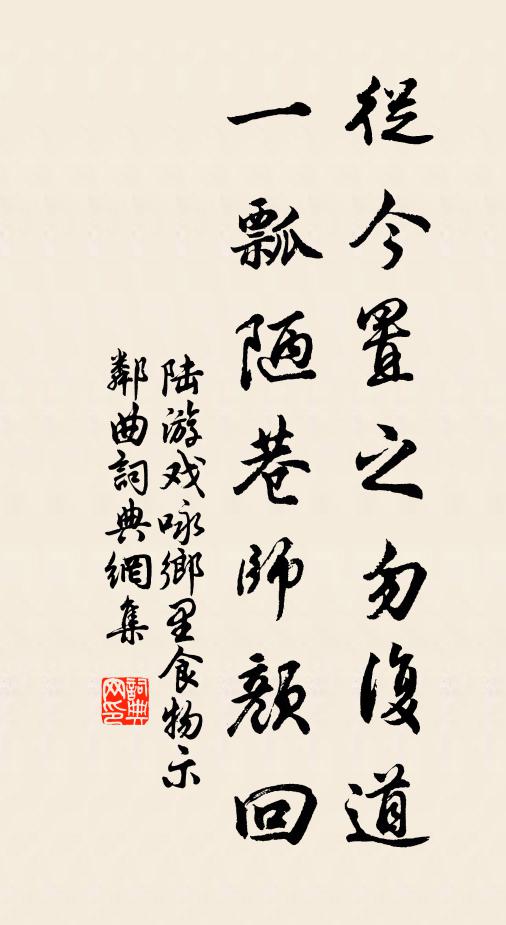 從今置之勿復道
一瓢陋巷師顏回
陆游戏咏鄉里食物示
鄰曲詞典網集
詞典网印